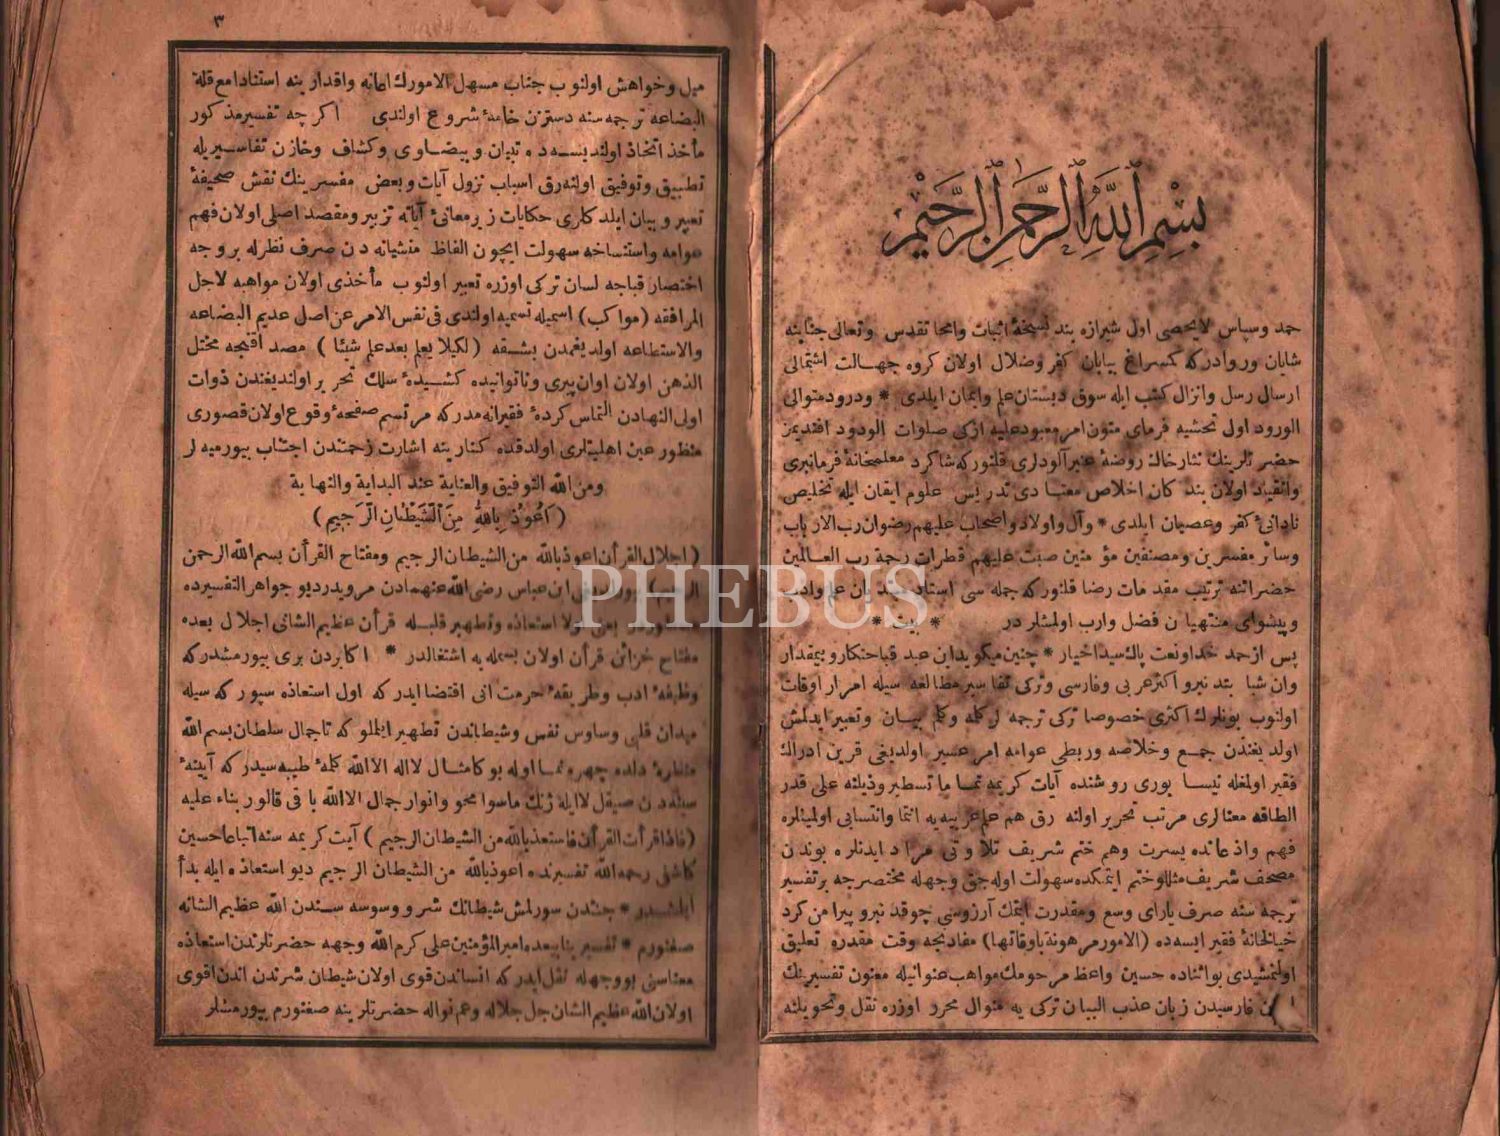 بسم الله الرحمن الرحيم
حمد وسپاس لايحصى اول شيرازه بند نسخهٔ اثبات وامحا تقدس وتعالى جنابنه
شايان وروادركه كمسراغ بيابان كفر وضلال اولان كروه جهالت اشتمالى
ارسال رسل وانزال كتب ايله سوق دبستان علم وايمان ايلدى * ودرود متوالى
الورود اول تحشيه فرماى متون امر معبود عليه ازكى صلوات الودود افنديمز
حضرتلرينك نثار خاك روضهٔ عنبر آلودلرى قلنور كه شاكرد معلمخانهٔ فرمانبرى
وانقياد اولان بندكان اخلاص معتادى تدريس علوم ايقان ايله تخليص
نادانئ كفر وعصيان ايلدى * وآل واولاد واصحاب عليهم رضوان رب الارباب
وسائر مفسرين ومصنفين مؤمنين صبت عليهم قطرات رحمة رب العالمين
حضراتنه ترتيب مقدمات رضا قلنور كه جمله سى استاد علم وادب
وپيشواى منتهيان فضل وارب اولمشلردر * بيت *
پس از حمد خدا ونعت پاك سيد اخيار * چنين ميكويد اين عبد قباحتكار وبيمقدار
اولنوب بونلرك اكثرى خصوصا تركى ترجمه لر كله وكلم بيان وتعبير ايدلمش
اولديغندن جمع وخلاصه وربطى عوامه امر عسير اولديغى قرين ادراك
فقير اولمغله تيسا يورى روشنده آيات كريمه تماما تسطير وذيلنه على قدر
الطاقه معنالرى مرتب تحرير اولنه رق هم علم عربيه يه انتما وانتسابى اولميانلره
فهم واذعانده يسرت وهم ختم شريف تلاوتى مراد ايدنلره بوندن
مصحف شريف مثللو ختم ايتمكده سهولت اوله جق وجهله مختصرجه بر تفسير
ترجمه سنه صرف ياراى وسع ومقدرت ايتمك آرزوسى چوقدنبرو پيرامن كرد
خيالخانهٔ فقير ايسه ده (الامور مرهونة باوقاتها) مفادنجه وقت مقدره تعليق
اولنمشيدى بو اثناده حسين واعظ مرحومك مواهب عنوانيله معنون تفسيرينك
فارسيدن زبان عذب البيان تركى يه منوال محرر اوزره نقل وتحويلنه
٣
ميل وخواهش اولنوب جناب مسهل الامورك اعانه واقدارينه استنادا مع قلة
البضاعه ترجمه سنه دستزن خامهٔ شروع اولندى اكرچه تفسير مذكور
مأخذ اتخاذ اولندبسه ده تبيان وبيضاوى وكشاف وخازن تفاسيريله
تطبيق وتوفيق اولنه رق اسباب نزول آيات وبعض مفسرينك نقش صحيفهٔ
تعبير وبيان ايلدكلرى حكايات زير معانئ آياته تزبير ومقصد اصلى اولان فهم
عوامه واستنساخه سهولت ايچون الفاظ منشيانه دن صرف نظرله بر وجه
اختصار قباجه لسان تركى اوزره تعبير اولنوب مأخذى اولان مواهبه لاجل
المرافقه (مواكب) اسميله تسميه اولندى فى نفس الامر عن اصل عديم البضاعه
والاستطاعه اولديغمدن بشقه (لكيلا يعلم بعد علم شيئا) مصداقنجه مختل
الذهن اولان اوان پيرى وناتوانيده كشيدهٔ سلك تحرير اولنديغندن ذوات
اولى النهادن التماس كردهٔ فقيرانه مدركه مرتسم صفحهٔ وقوع اولان قصورى
منظور عين اهليتلرى اولدقده كنارينه اشارت زحمتندن اجتناب بيورميه لر
ومن الله التوفيق والعناية عند البداية والنهاية
(اعوذ بالله من الشيطان الرجيم)
(اجلال القرأن اعوذ بالله من الشيطان الرجيم ومفتاح القرأن بسم الله الرحمن
ابن عباس رضى الله عنهمادن مرويدر ديو جواهر التفسيرده
اولا استعاذه وتطهير قلبله قرأن عظيم الشانى اجلال بعده
مفتاح خزائن قرأن اولان بسمله يه اشتغالدر * اكابردن برى بيورمشدركه
وظيفهٔ ادب وطريقهٔ حرمت انى اقتضا ايدركه اول استعاذه سپوركه سيله
ميدان قلبى وساوس نفس وشيطاندن تطهير ايتملو كه تا جمال سلطان بسم الله
منظرهٔ دلده چهره نما اوله بوكا مثال لااله الاالله كلمهٔ طيبه سيدركه آيينهٔ
سينه دن صيقل لااله ژنك ماسوا محو وانوار جمال الاالله باقى قالور بناء عليه
(فاذا قرأت القرأن فاستعذ بالله من الشيطان الرجيم) آيت كريمه سنه اتباعا حسين
كاشفى رحمه الله تفسيرنده اعوذ بالله من الشيطان الرجيم ديو استعاذه ايله بدأ
ايلمشدر * شيطانك شر ووسوسه سندن الله عظيم الشانه
صغنورم * تفسير ينابيعده امير المؤمنين على كرم الله وجهه حضرتلرندن استعاذه
معناسى بو وجهله نقل ايدركه انساندن قوى اولان شيطان شرندن اندن اقوى
اولان الله عظيم الشان جل جلاله وعم نواله حضرتلرينه صغنورم بيورمشلر
PHEBUS